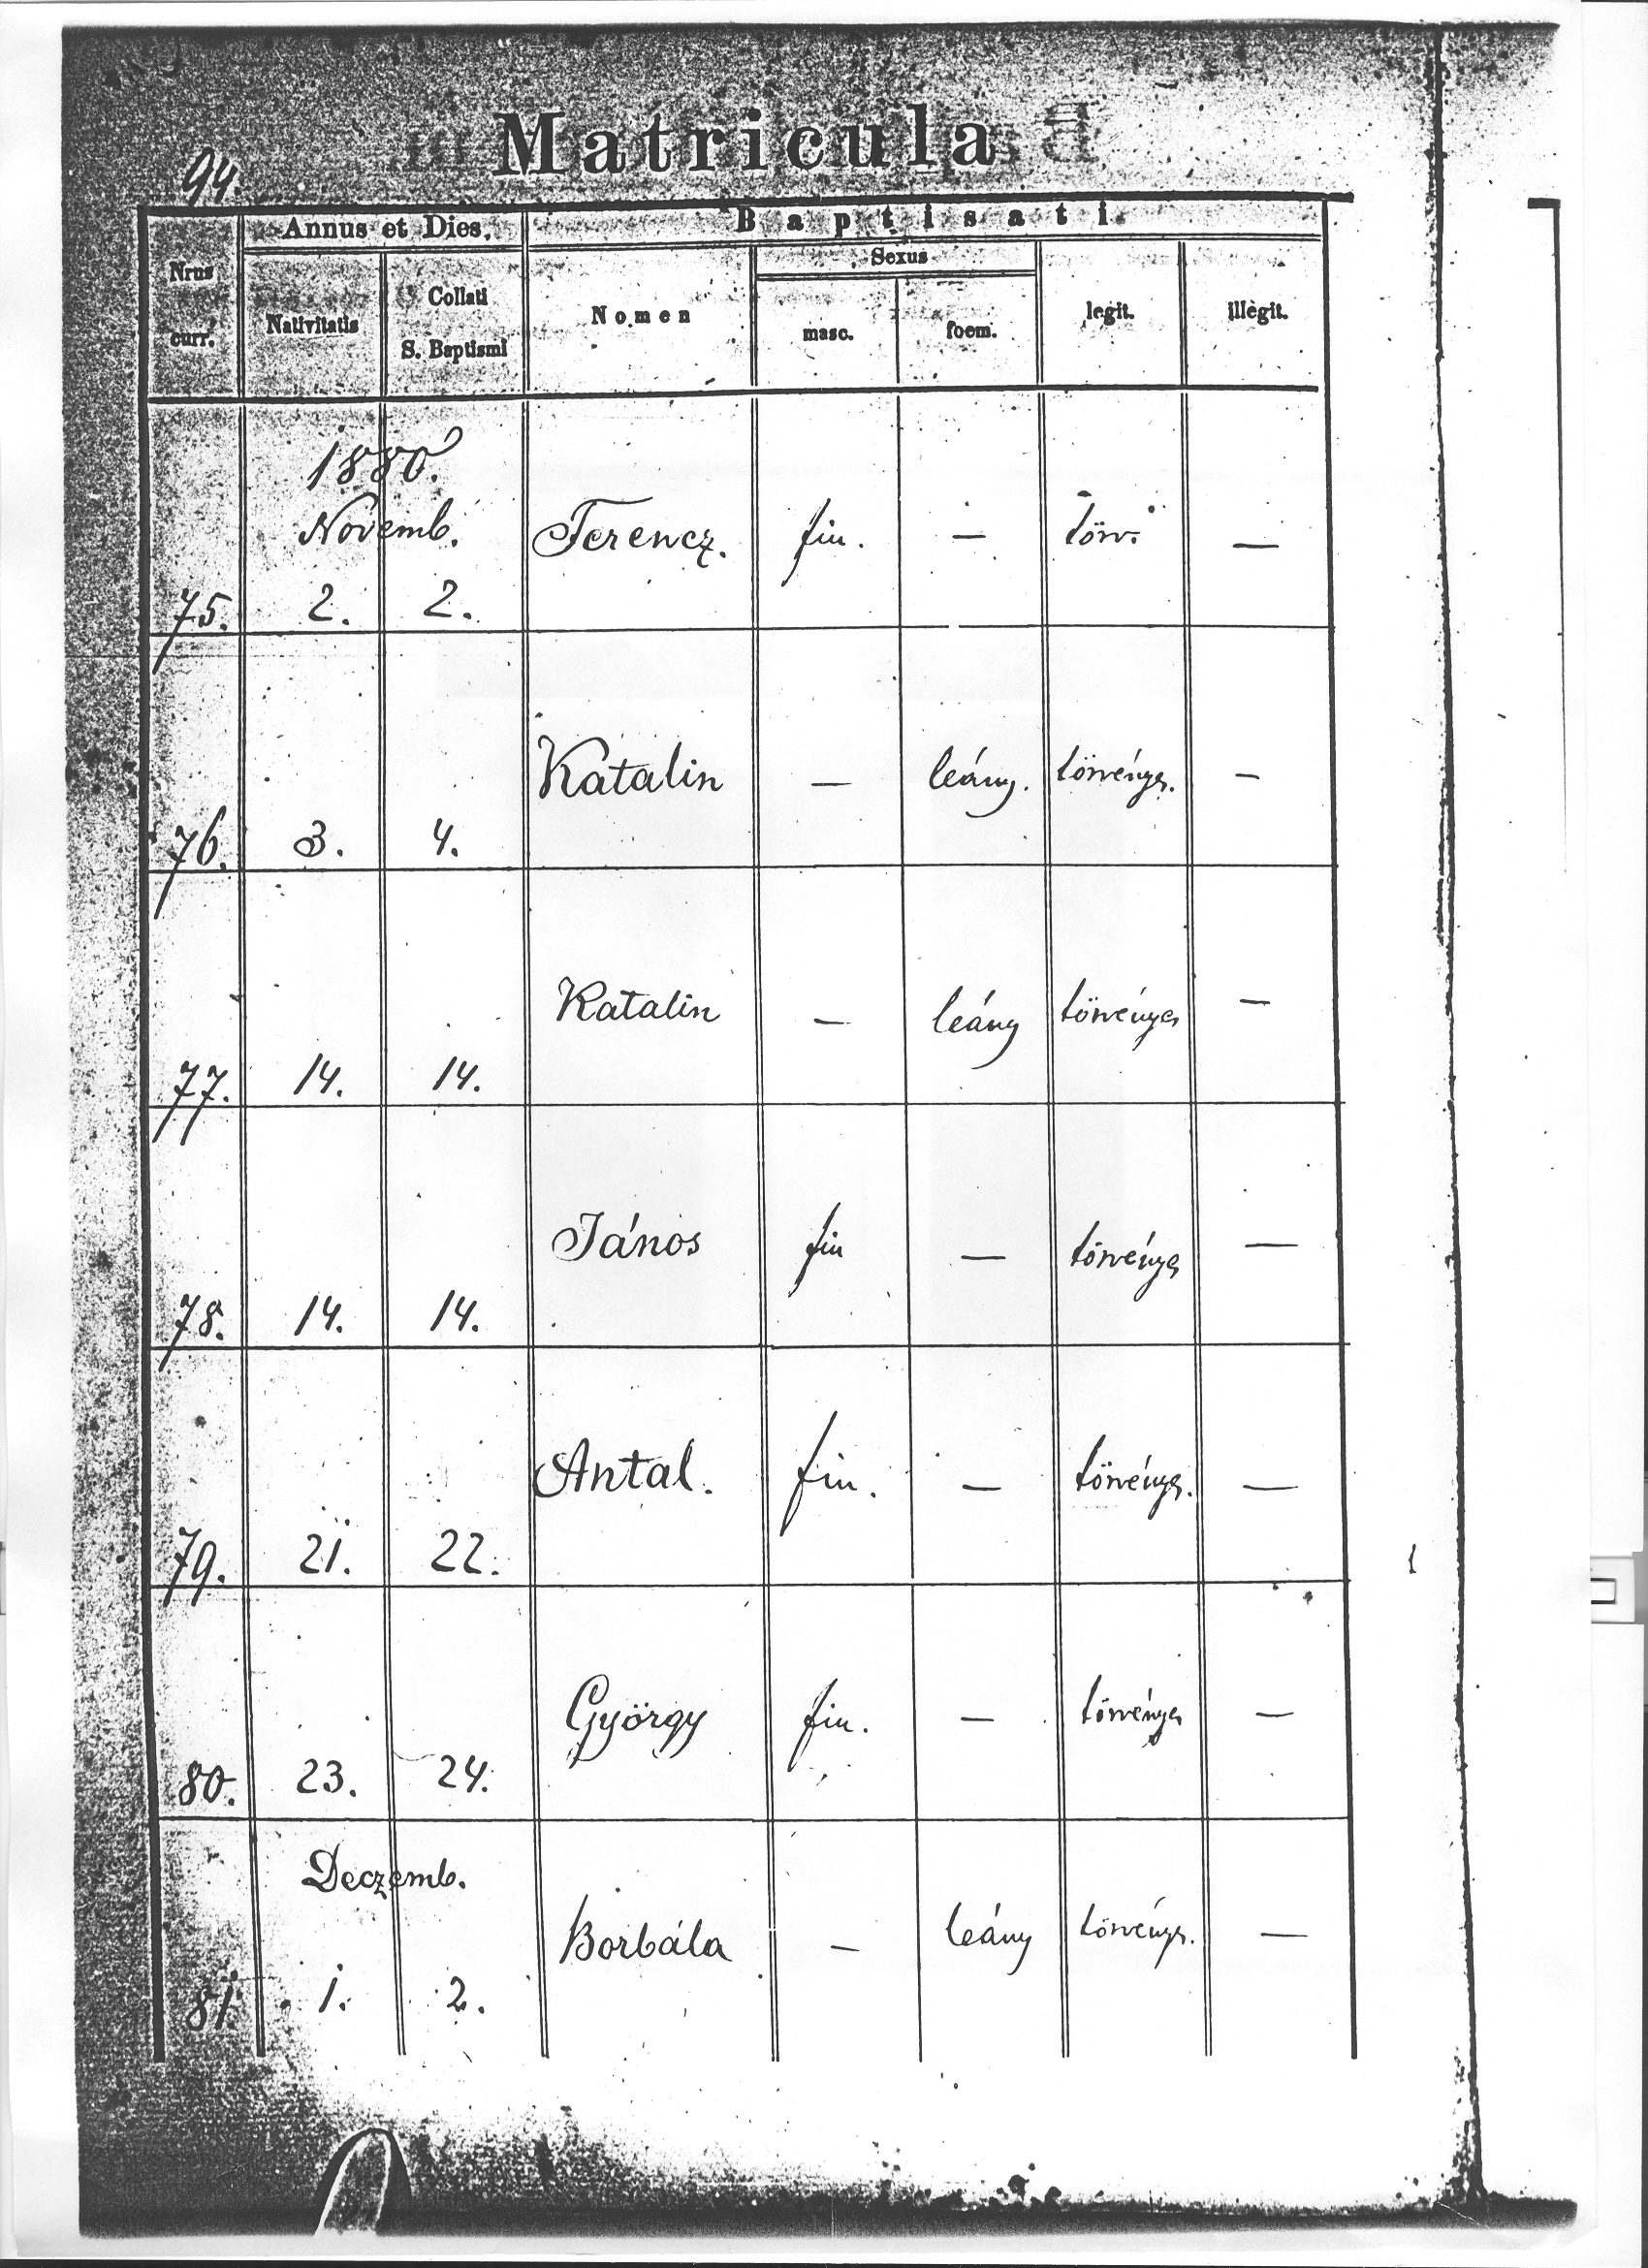 94.
Matricula
Nrus curr.
Annus et Dies.
Nativitatis
Collati S. Baptismi
Baptisati
Nomen
Sexus
masc.
foem.
legit.
illegit.
1880.
Novemb.
75. 2. 2. Ferencz. fiu. — törv. —
76. 3. 4. Katalin — leány. törvényes. —
77. 14. 14. Katalin — leány törvényes —
78. 14. 14. János fiu — törvényes —
79. 21. 22. Antal. fiu. — törvényes. —
80. 23. 24. György fiu. — törvényes —
Deczemb.
81. 1. 2. Borbála — leány törvényes. —